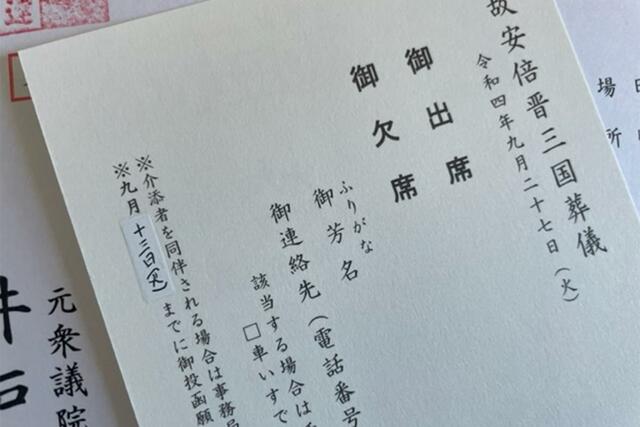 故安倍晋三国葬儀
令和四年九月二十七日(火)
御出席
御欠席
ふりがな
御芳名
御連絡先(電話番号
該当する場合は
□車いすで
※介添者を同伴される場合は事務局
※九月十三日(火)までに御投函願
元衆議院
場
所